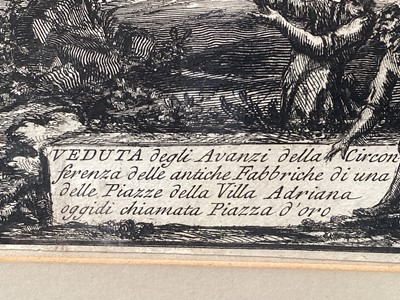 VEDUTA degli Avanzi della Circon
ferenza delle antiche Fabbriche di una
delle Piazze della Villa Adriana
oggidi chiamata Piazza d'oro